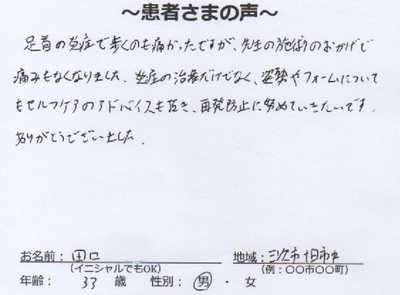 ～患者さまの声～
足首の炎症で歩くのも痛かったですが、先生の施術のおかげで
痛みもなくなりました。炎症の治療だけでなく、姿勢やフォームについて
もセルフケアのアドバイスも頂き、再発防止に努めていきたいです。
ありがとうございました。
お名前：田口 地域：三次市十日市中
(イニシャルでもOK) (例：〇〇市〇〇町)
年齢： 33 歳 性別： 男 ・ 女